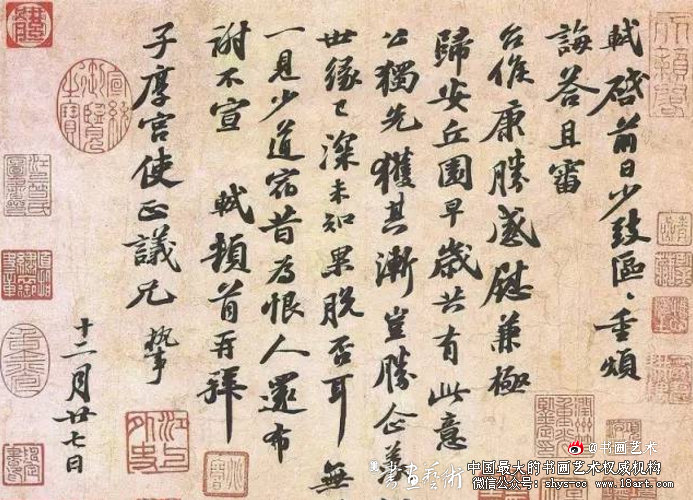 軾啓前日少致區〻重煩
誨荅且審
台候康勝感慰兼極
歸安丘園早歲共有此意
公獨先獲其漸豈勝企羨
世緣已深未知果脫否耳無
一見少道宿昔為恨人還布
謝不宣 軾頓首再拜
子厚宮使正議兄 執事
十二月廿七日
宣統御覽之寶
江上外史
@书画艺术
書畫藝術
中国最大的书画艺术权威机构
微信公众号：shys-cc www.18art.com